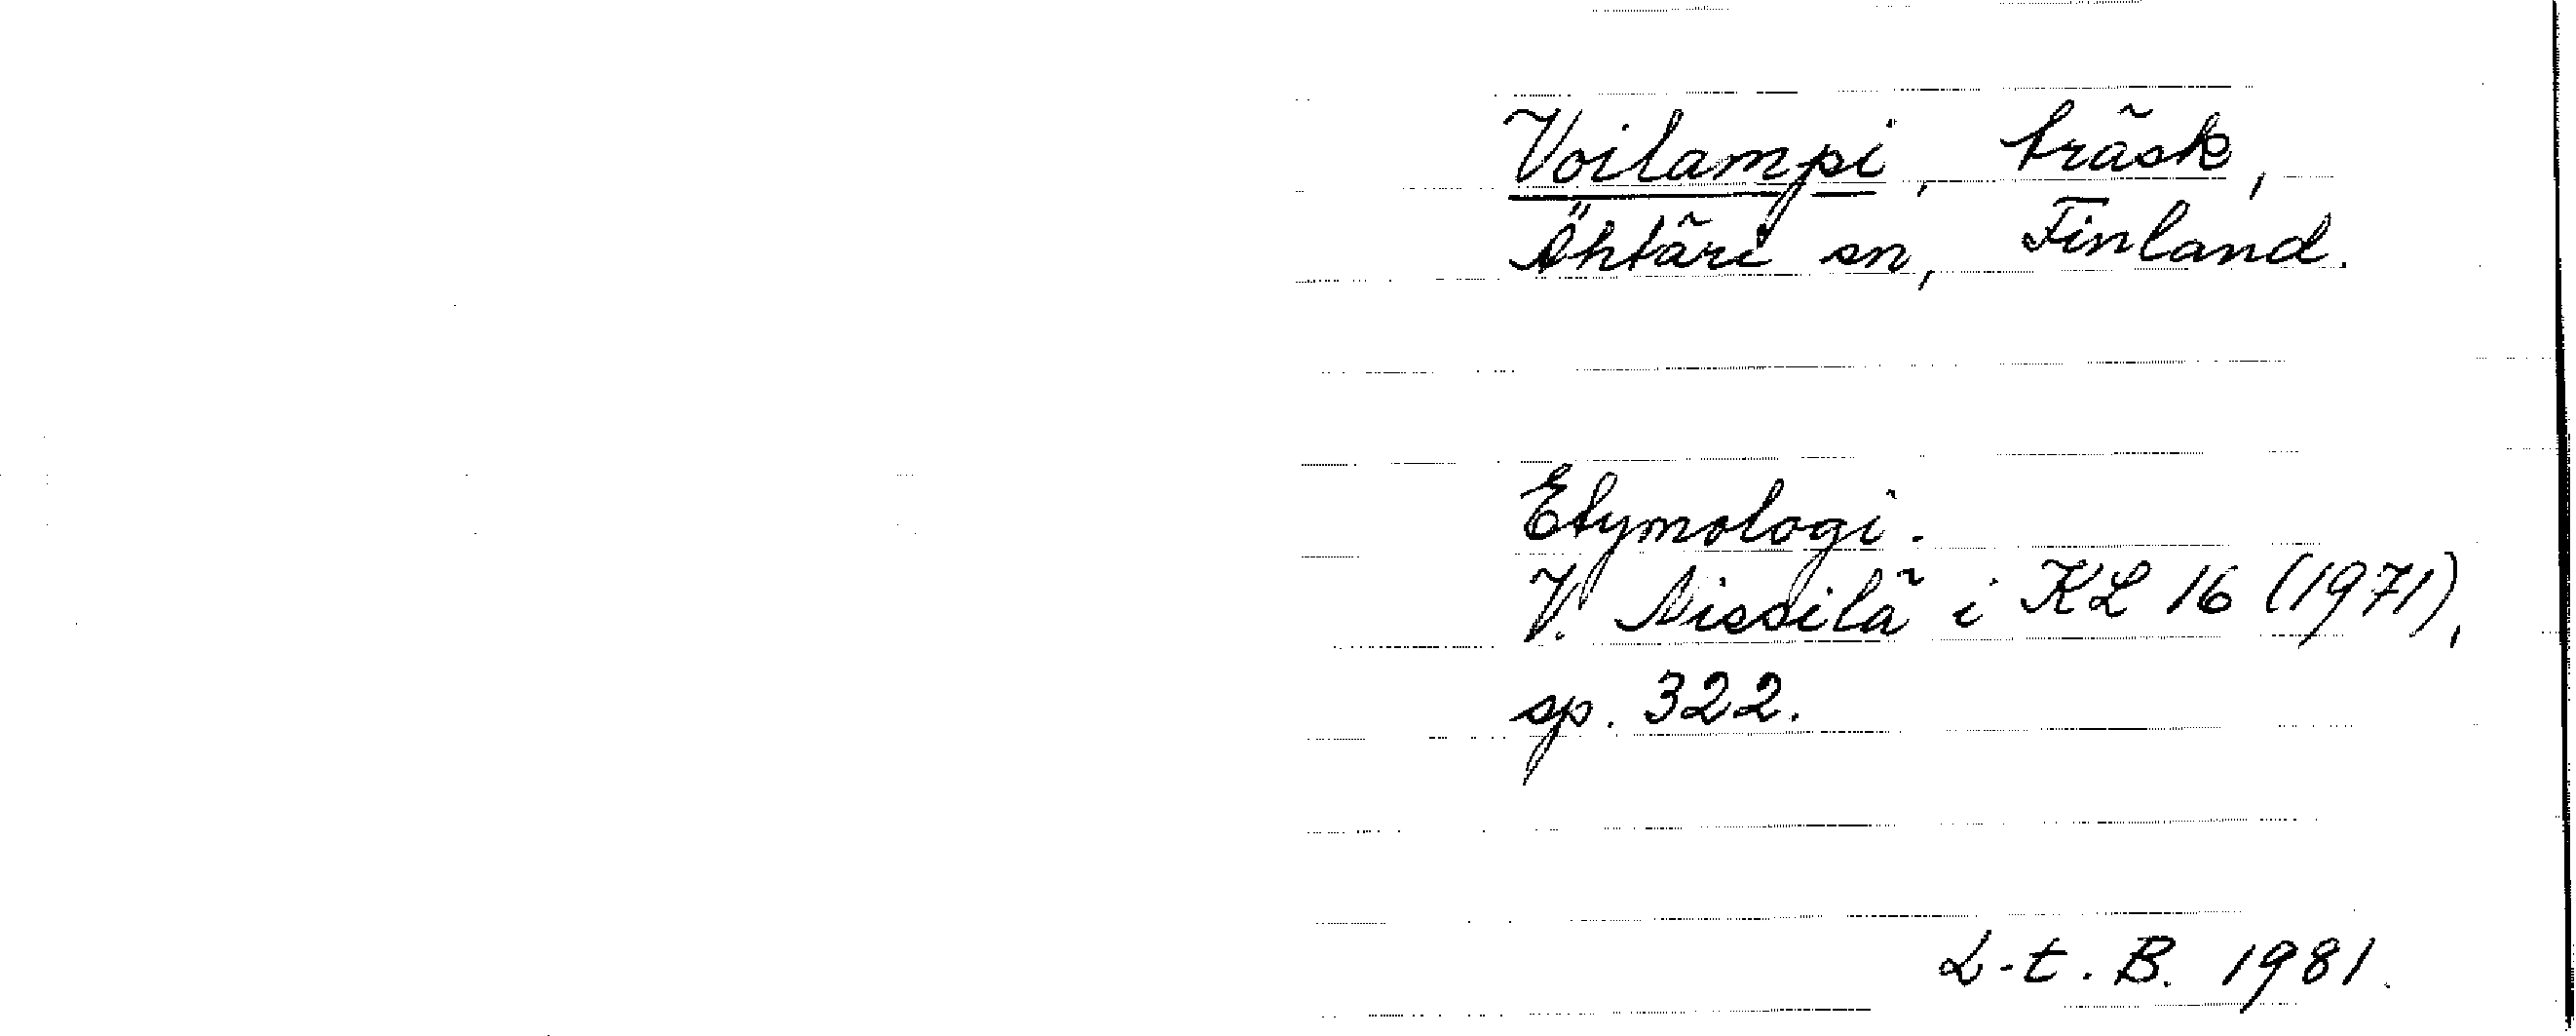 Voilampi, träsk,
Ähtäri sn, Finland.
Etymologi.
V. Nissilä i KL 16 (1971),
sp. 322.
L-t. B. 1981.